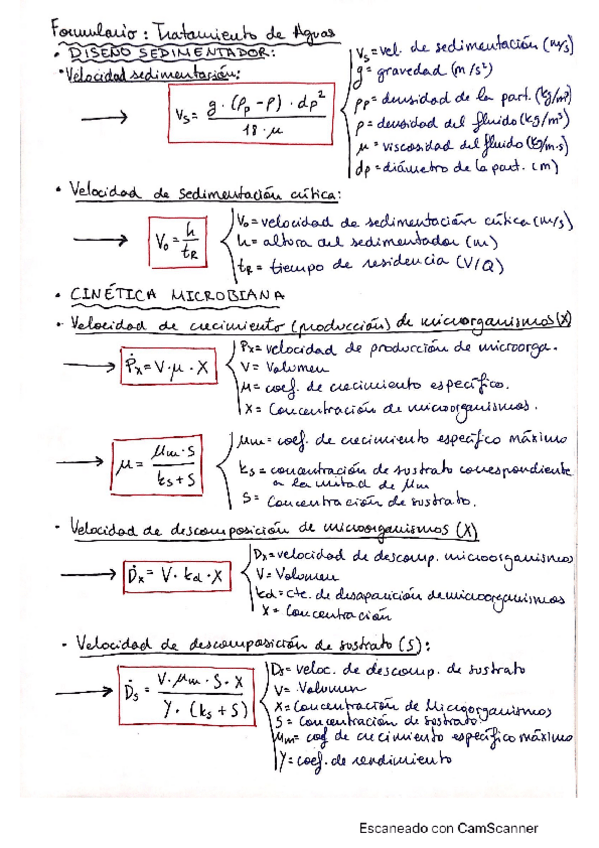 Formulario: Tratamiento de Aguas
• DISEÑO SEDIMENTADOR:
• Velocidad sedimentación:
→ Vs = g · (ρp - ρ) · dp² / 18 · μ
Vs = vel. de sedimentación (m/s)
g = gravedad (m/s²)
ρp = densidad de la part. (kg/m³)
ρ = densidad del fluido (kg/m³)
μ = viscosidad del fluido (kg/m·s)
dp = diámetro de la part. (m)
• Velocidad de sedimentación crítica:
→ V₀ = h / tR
V₀ = velocidad de sedimentación crítica (m/s)
h = altura del sedimentador (m)
tR = tiempo de residencia (V/Q)
• CINÉTICA MICROBIANA
• Velocidad de crecimiento (producción) de microorganismos (X)
→ Ṗx = V · μ · X
Px = velocidad de producción de microorga.
V = Volumen
μ = coef. de crecimiento específico.
X = Concentración de microorganismos.
→ μ = μm · S / ks + S
μm = coef. de crecimiento específico máximo
ks = concentración de sustrato correspondiente
a la mitad de μm
S = Concentración de sustrato.
• Velocidad de descomposición de microorganismos (X)
→ Ḋx = V · kd · X
Dx = velocidad de descomp. microorganismos
V = Volumen
kd = cte. de desaparición de microorganismos
X = Concentración
• Velocidad de descomposición de sustrato (S):
→ Ḋs = V · μm · S · X / Y · (ks + S)
Ds = veloc. de descomp. de sustrato
V = Volumen
X = Concentración de Microorganismos
S = Concentración de sustrato.
μm = coef de crecimiento específico máximo
Y = coef. de rendimiento
Escaneado con CamScanner